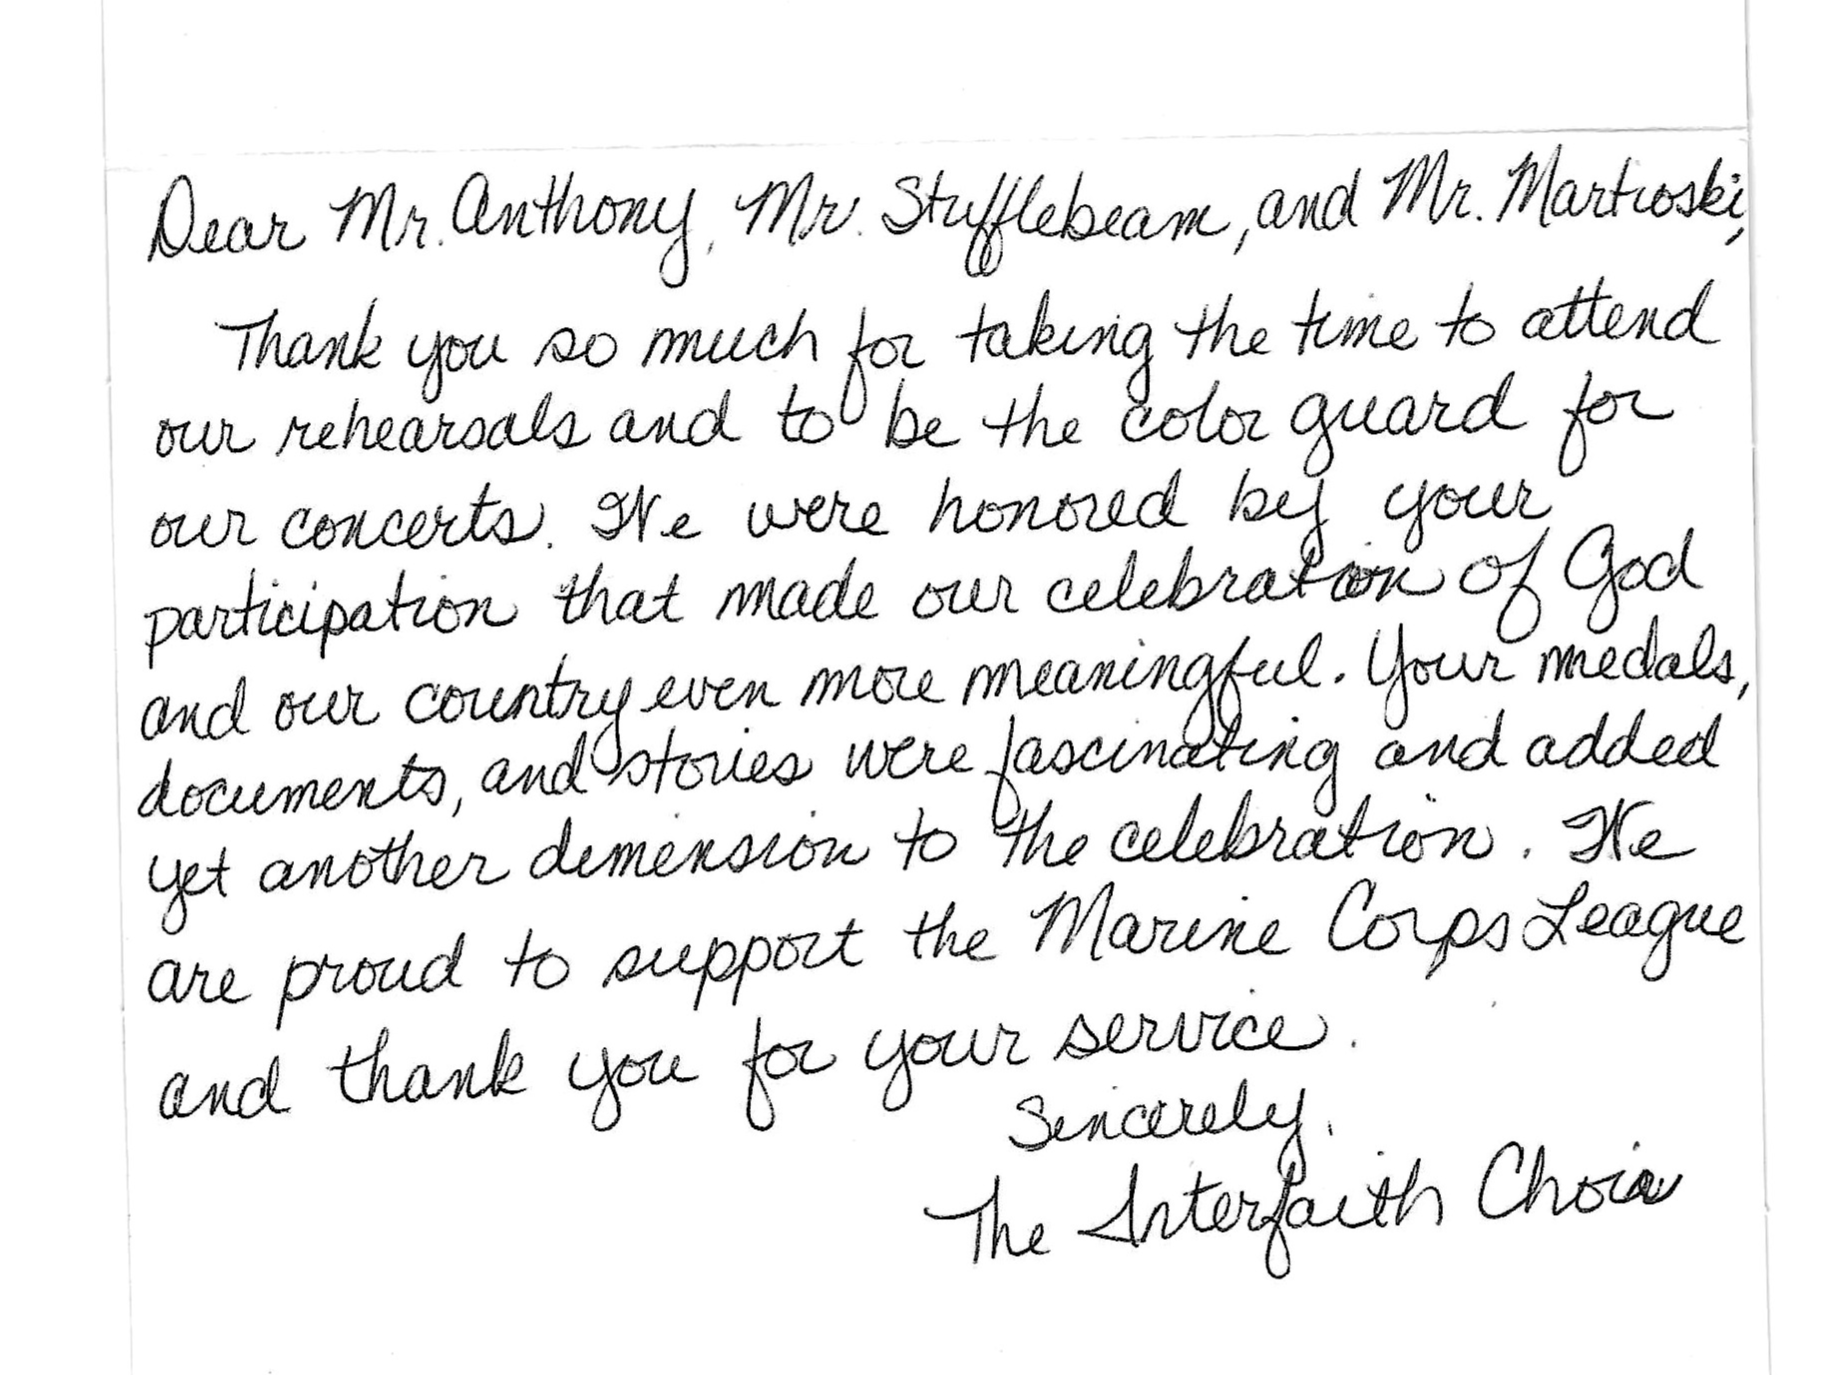 Dear Mr. Anthony, Mr. Stufflebeam, and Mr. Martroski,
Thank you so much for taking the time to attend
our rehearsals and to be the color guard for
our concerts. We were honored by your
participation that made our celebration of God
and our country even more meaningful. Your medals,
documents, and stories were fascinating and added
yet another dimension to the celebration. We
are proud to support the Marine Corps League
and thank you for your service.
Sincerely,
The Interfaith Choir